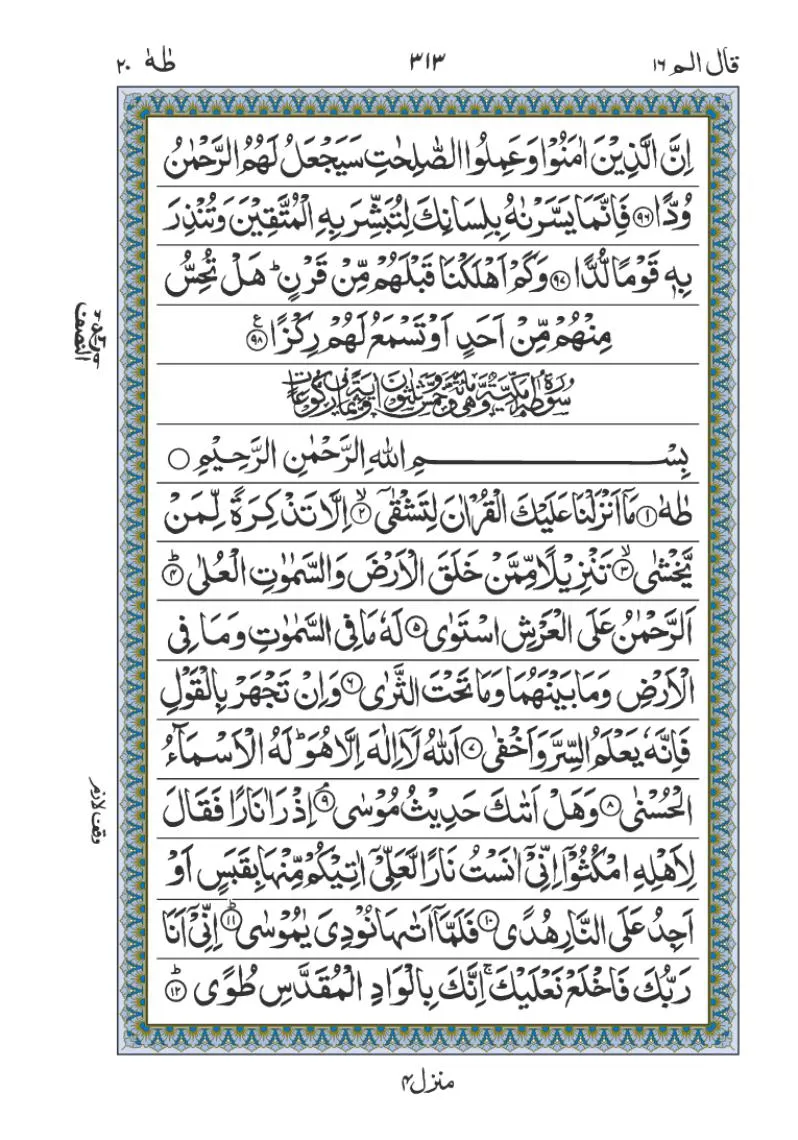 قال الم ١٦
٣١٣
طٰهٰ ٢٠
اِنَّ الَّذِيْنَ اٰمَنُوْا وَعَمِلُوا الصّٰلِحٰتِ سَيَجْعَلُ لَهُمُ الرَّحْمٰنُ
وُدًّا ﴿٩٦﴾ فَاِنَّمَا يَسَّرْنٰهُ بِلِسَانِكَ لِتُبَشِّرَ بِهِ الْمُتَّقِيْنَ وَتُنْذِرَ
بِهٖ قَوْمًا لُّدًّا ﴿٩٧﴾ وَكَمْ اَهْلَكْنَا قَبْلَهُمْ مِّنْ قَرْنٍ ؕ هَلْ تُحِسُّ
مِنْهُمْ مِّنْ اَحَدٍ اَوْ تَسْمَعُ لَهُمْ رِكْزًا ﴿٩٨﴾ ع
النصف
سُوْرَةُ طٰهٰ مَكِّيَّةٌ وَّهِيَ مِائَةٌ وَّخَمْسٌ وَّثَلٰثُوْنَ اٰيَةً وَّثَمَانِيْ رُكُوْعَاتٍ
بِسْمِ اللّٰهِ الرَّحْمٰنِ الرَّحِيْمِ ○
طٰهٰ ﴿١﴾ مَاۤ اَنْزَلْنَا عَلَيْكَ الْقُرْاٰنَ لِتَشْقٰۤى ﴿٢﴾ ۙ اِلَّا تَذْكِرَةً لِّمَنْ
يَّخْشٰى ﴿٣﴾ ۙ تَنْزِيْلًا مِّمَّنْ خَلَقَ الْاَرْضَ وَالسَّمٰوٰتِ الْعُلٰى ﴿٤﴾ ؕ
اَلرَّحْمٰنُ عَلَى الْعَرْشِ اسْتَوٰى ﴿٥﴾ لَهٗ مَا فِى السَّمٰوٰتِ وَمَا فِى
الْاَرْضِ وَمَا بَيْنَهُمَا وَمَا تَحْتَ الثَّرٰى ﴿٦﴾ وَاِنْ تَجْهَرْ بِالْقَوْلِ
فَاِنَّهٗ يَعْلَمُ السِّرَّ وَاَخْفٰى ﴿٧﴾ اَللّٰهُ لَاۤ اِلٰهَ اِلَّا هُوَ ؕ لَهُ الْاَسْمَآءُ
الْحُسْنٰى ﴿٨﴾ وَهَلْ اَتٰىكَ حَدِيْثُ مُوْسٰى ﴿٩﴾ ۘ اِذْ رَاٰ نَارًا فَقَالَ
وقف لازم
لِاَهْلِهِ امْكُثُوْۤا اِنِّيْۤ اٰنَسْتُ نَارًا لَّعَلِّيْۤ اٰتِيْكُمْ مِّنْهَا بِقَبَسٍ اَوْ
اَجِدُ عَلَى النَّارِ هُدًى ﴿١٠﴾ فَلَمَّاۤ اَتٰىهَا نُوْدِىَ يٰمُوْسٰى ﴿١١﴾ ؕ اِنِّيْۤ اَنَا
رَبُّكَ فَاخْلَعْ نَعْلَيْكَ ۚ اِنَّكَ بِالْوَادِ الْمُقَدَّسِ طُوًى ﴿١٢﴾ ؕ
منزل ٤